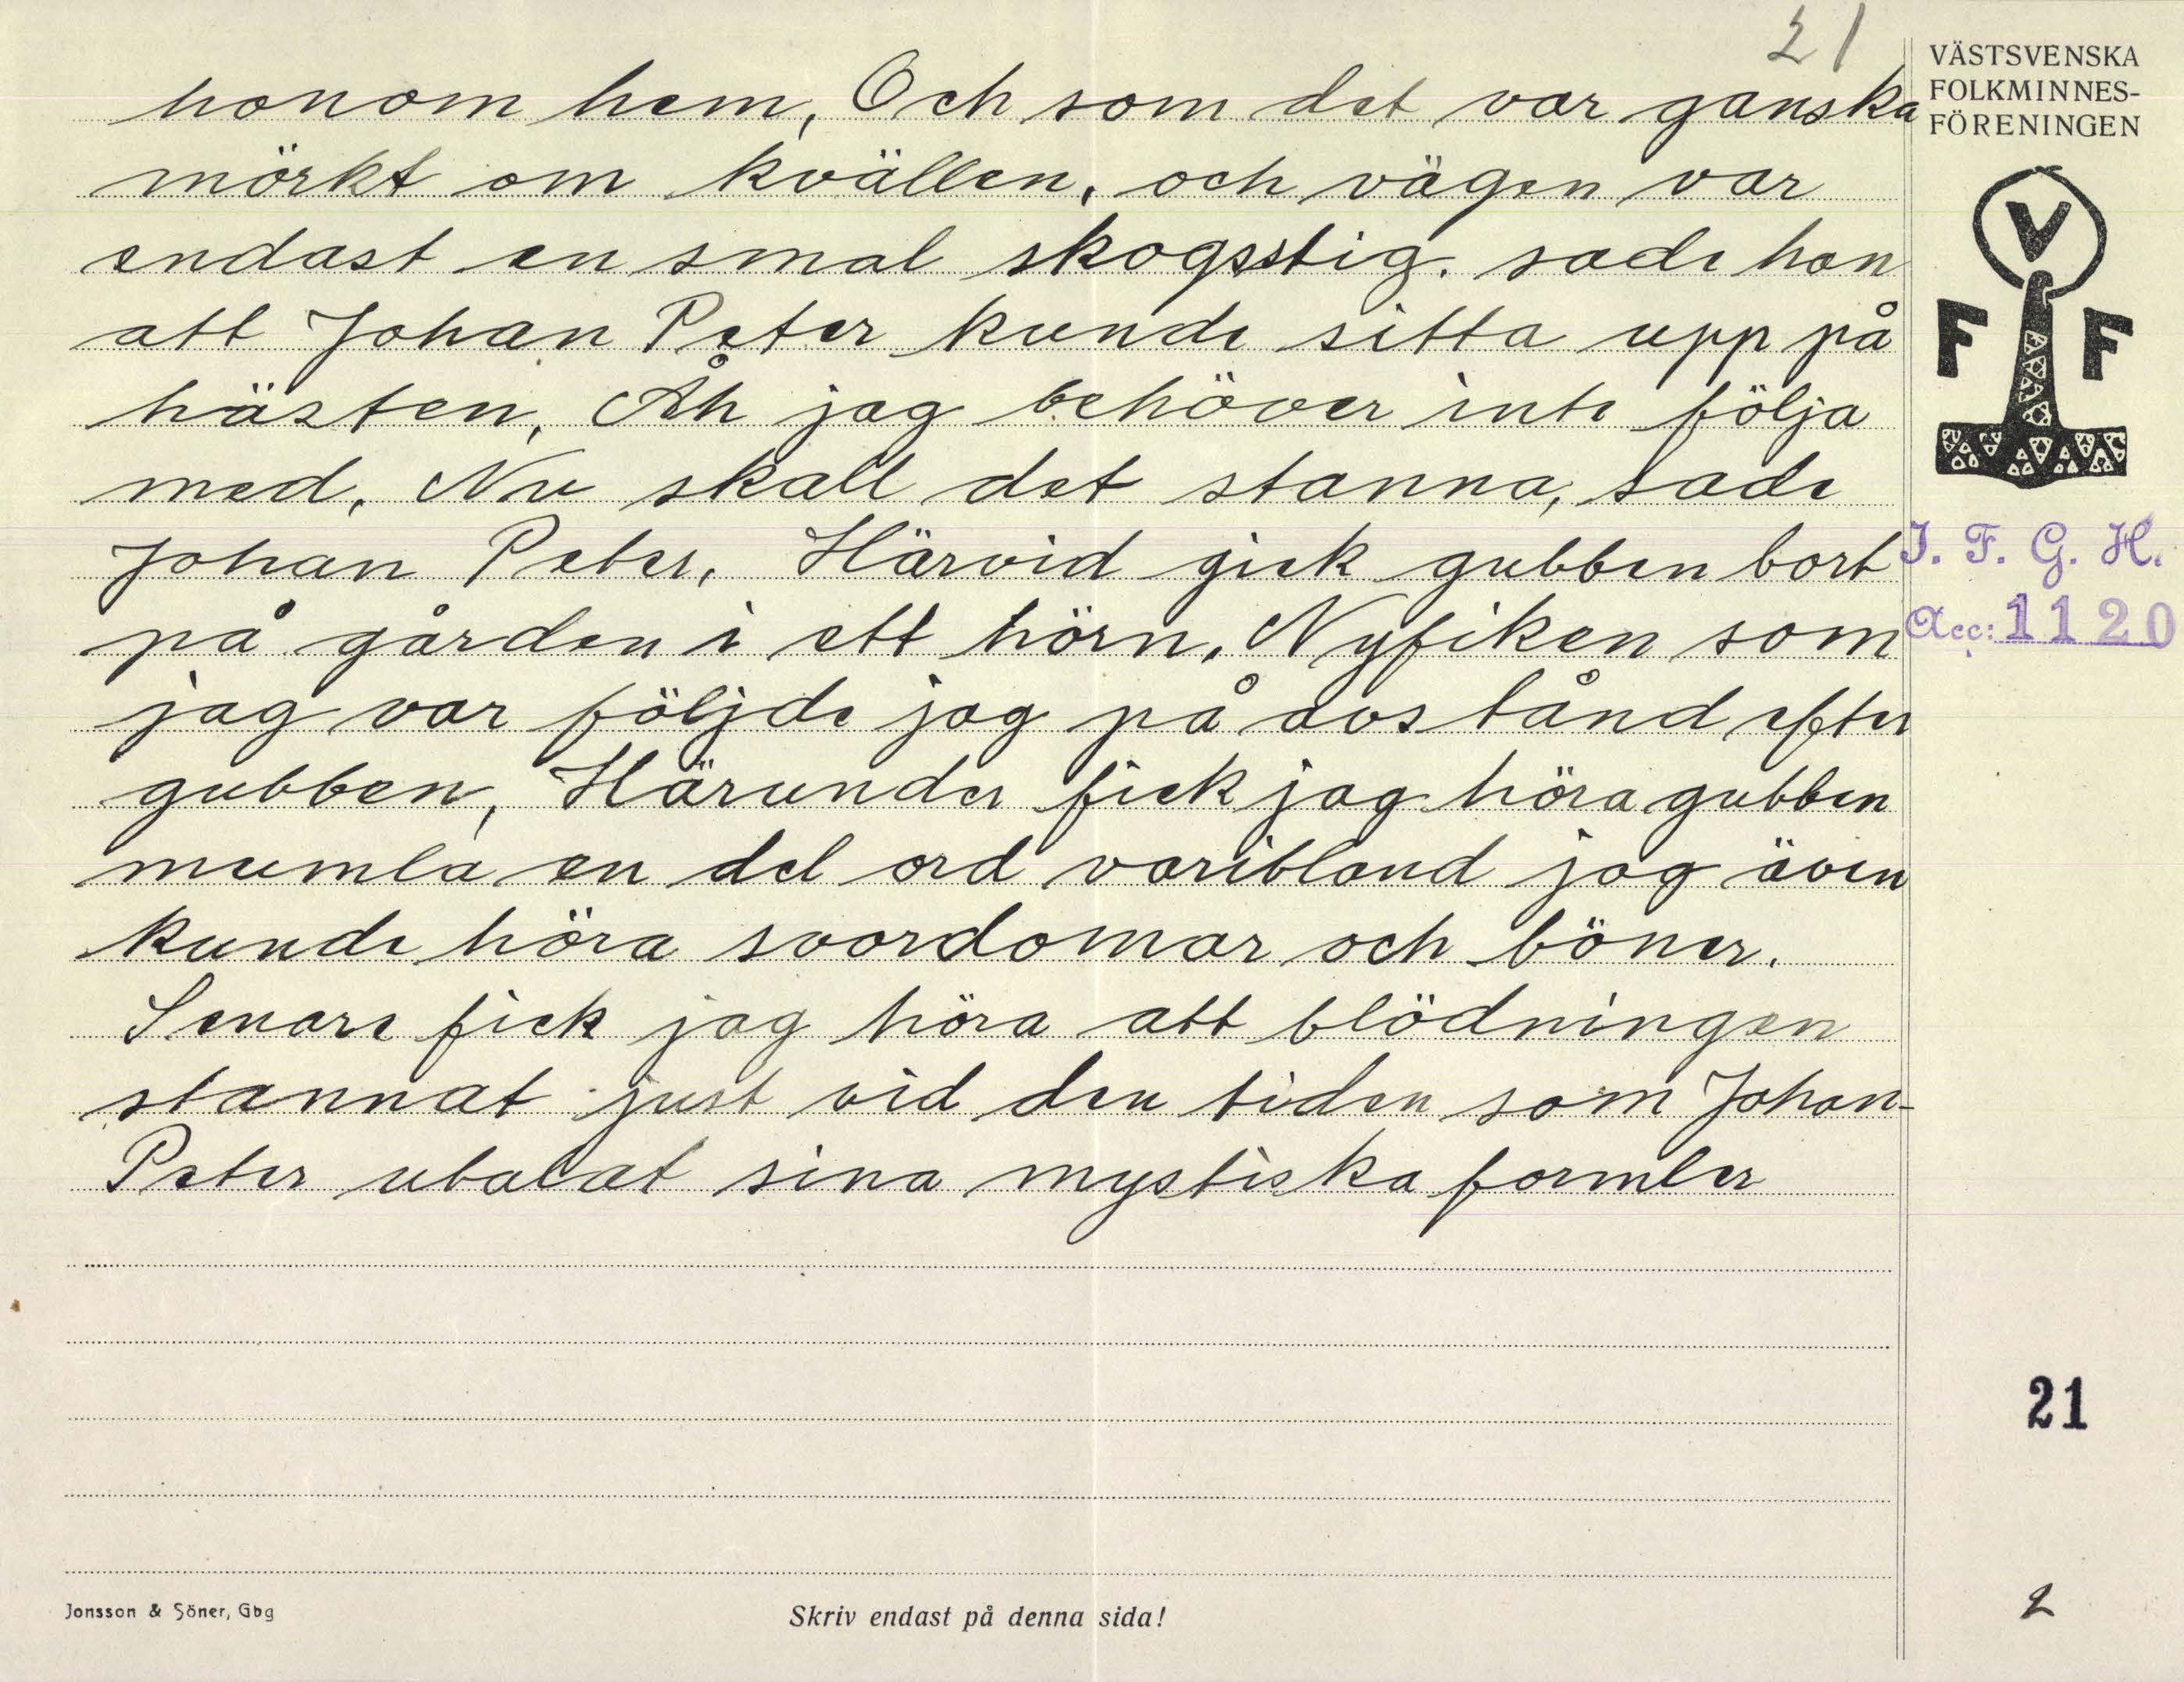 21
honom hem, Och som det var ganska
mörkt om kvällen, och vägen var
endast en smal skogsstig. sade han
att Johan Peter kunde sitta upp på
hästen, Åh jag behöver inte följa
med, Nu skall det stanna, sade
Johan Peter, Härvid gick gubben bort
på gården i ett hörn, Nyfiken som
jag var följde jag på avstånd efter
gubben, Härunder fick jag höra gubben
mumla en del ord varibland jag även
kunde höra svordomar och böner.
Senare fick jag höra att blödningen
stannat just vid den tiden som Johan-
Peter utalat sina mystiska formler
Jonsson & Söner, Gbg
Skriv endast på denna sida!
VÄSTSVENSKA
FOLKMINNES-
FÖRENINGEN
V
F F
I. F. G. H.
Acc: 1120
21
2